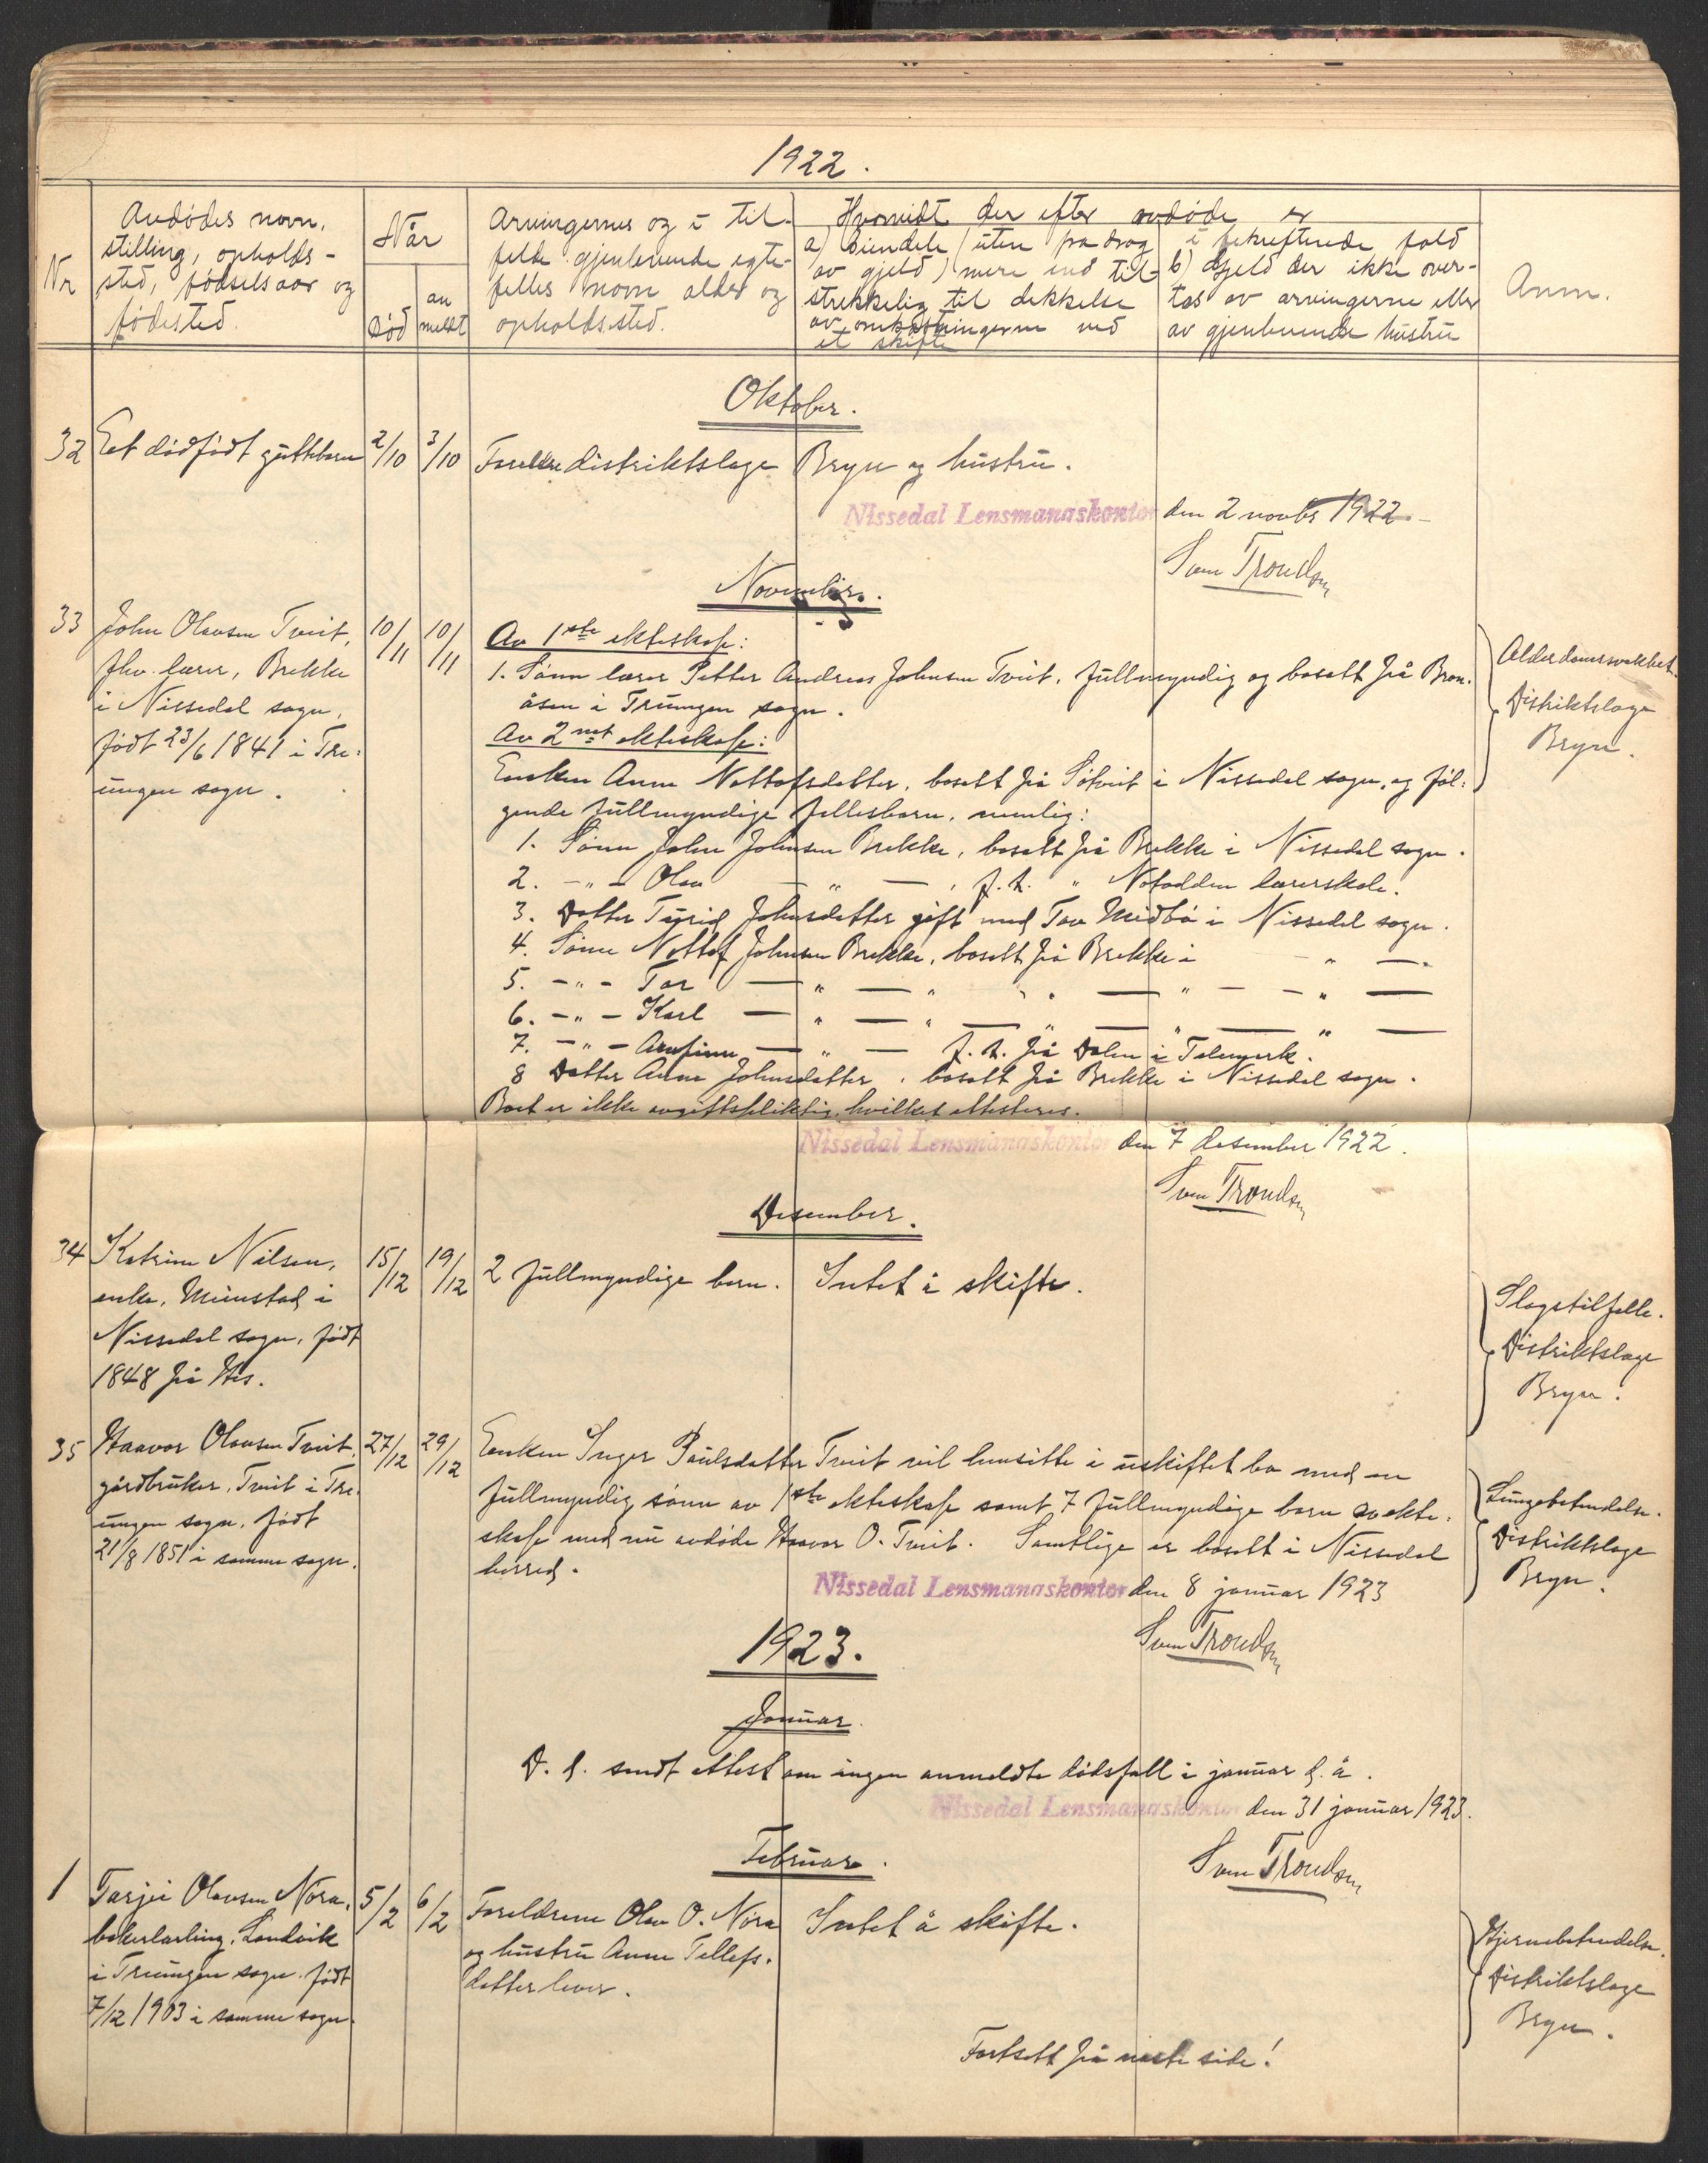 1922.
Nr
Avdødes navn,
stilling, opholds-
sted, fødselsaar og
fødested.
Når
død
an
meldt
Arvingernes og i til-
felde gjenlevende egte-
felles navn alder og
opholdssted.
Hvorvidt der efter avdøde er
a) Eiendele (uten fradrag
av gjeld) mere end til-
strekkelig til dekkelse
av omkostningerne ved
et skifte
i bekreftende fald
b) Gjeld der ikke over-
tas av arvingerne eller
av gjenlevende hustru
Anm.
Oktober.
32 Et dødfødt guttebarn 2/10 3/10 Foreldre distriktslæge Bryn og hustru.
Nissedal Lensmannskontor den 2 novbr 1922.
Sven Trondsen
November.
33 John Olavsen Tveit,
fhv. lærer, Brekke
i Nissedal sogn,
født 23/6 1841 i Tre-
ungen sogn.
10/11 10/11
Av 1ste ekteskap:
1. Sønn lærer Petter Andreas Johnsen Tveit, fullmyndig og bosatt på Bron-
åsen i Treungen sogn.
Av 2net ekteskap:
Enken Anne Nottofsdatter, bosatt på Søtveit i Nissedal sogn, og føl-
gende fullmyndige fellesbarn, nemlig:
1. Sønn John Johnsen Brekke, bosatt på Brekke i Nissedal sogn.
2. -"- Olav — " — , f. t. " Notodden lærerskole.
3. Datter Tyrid Johnsdatter gift med Tov Midbø i Nissedal sogn.
4. Sønn Nottof Johnsen Brekke, bosatt på Brekke i — " —
5. -"- Tor — " — " — " — " —
6. -"- Karl — " — " — " — " —
7. -"- Arnfinn — " — f. t. på Dalen i Telemark.
8 Datter Anne Johnsdatter, bosatt på Brekke i Nissedal sogn.
Boet er ikke avgiftspliktig, hvilket attesteres.
Alderdomssvakhet.
Distriktslæge
Bryn.
Nissedal Lensmannskontor den 7 desember 1922.
Sven Trondsen
Desember.
34 Katrine Nilsen,
enke, Meinstad i
Nissedal sogn, født
1848 på His.
15/12 19/12 2 fullmyndige barn. Intet å skifte.
Slagtilfelle.
Distriktslæge
Bryn.
35 Haavor Olavsen Tveit,
gårdbruker, Tveit i Tre-
ungen sogn, født
21/8 1851 i samme sogn.
27/12 29/12
Enken Inger Paulsdatter Tveit vil hensitte i uskiftet bo med en
fullmyndig sønn av 1ste ekteskap samt 7 fullmyndige barn av ekte-
skap med nu avdøde Haavor O. Tveit. Samtlige er bosatt i Nissedal
herred.
Lungebetendelse.
Distriktslæge
Bryn.
Nissedal Lensmannskontor den 8 januar 1923
Sven Trondsen
1923.
Januar.
D. d. sendt attest om ingen anmeldte dødsfall i januar d. å.
Nissedal Lensmannskontor den 31 januar 1923.
Sven Trondsen
Februar.
1 Tarjei Olavsen Nora,
bakerlærling, Landvik
i Treungen sogn, født
7/12 1903 i samme sogn.
5/2 6/2
Foreldrene Olav O. Nora
og hustru Anne Tellefs-
datter lever.
Intet å skifte.
Hjernebetendelse.
Distriktslæge
Bryn.
Fortsett på neste side!